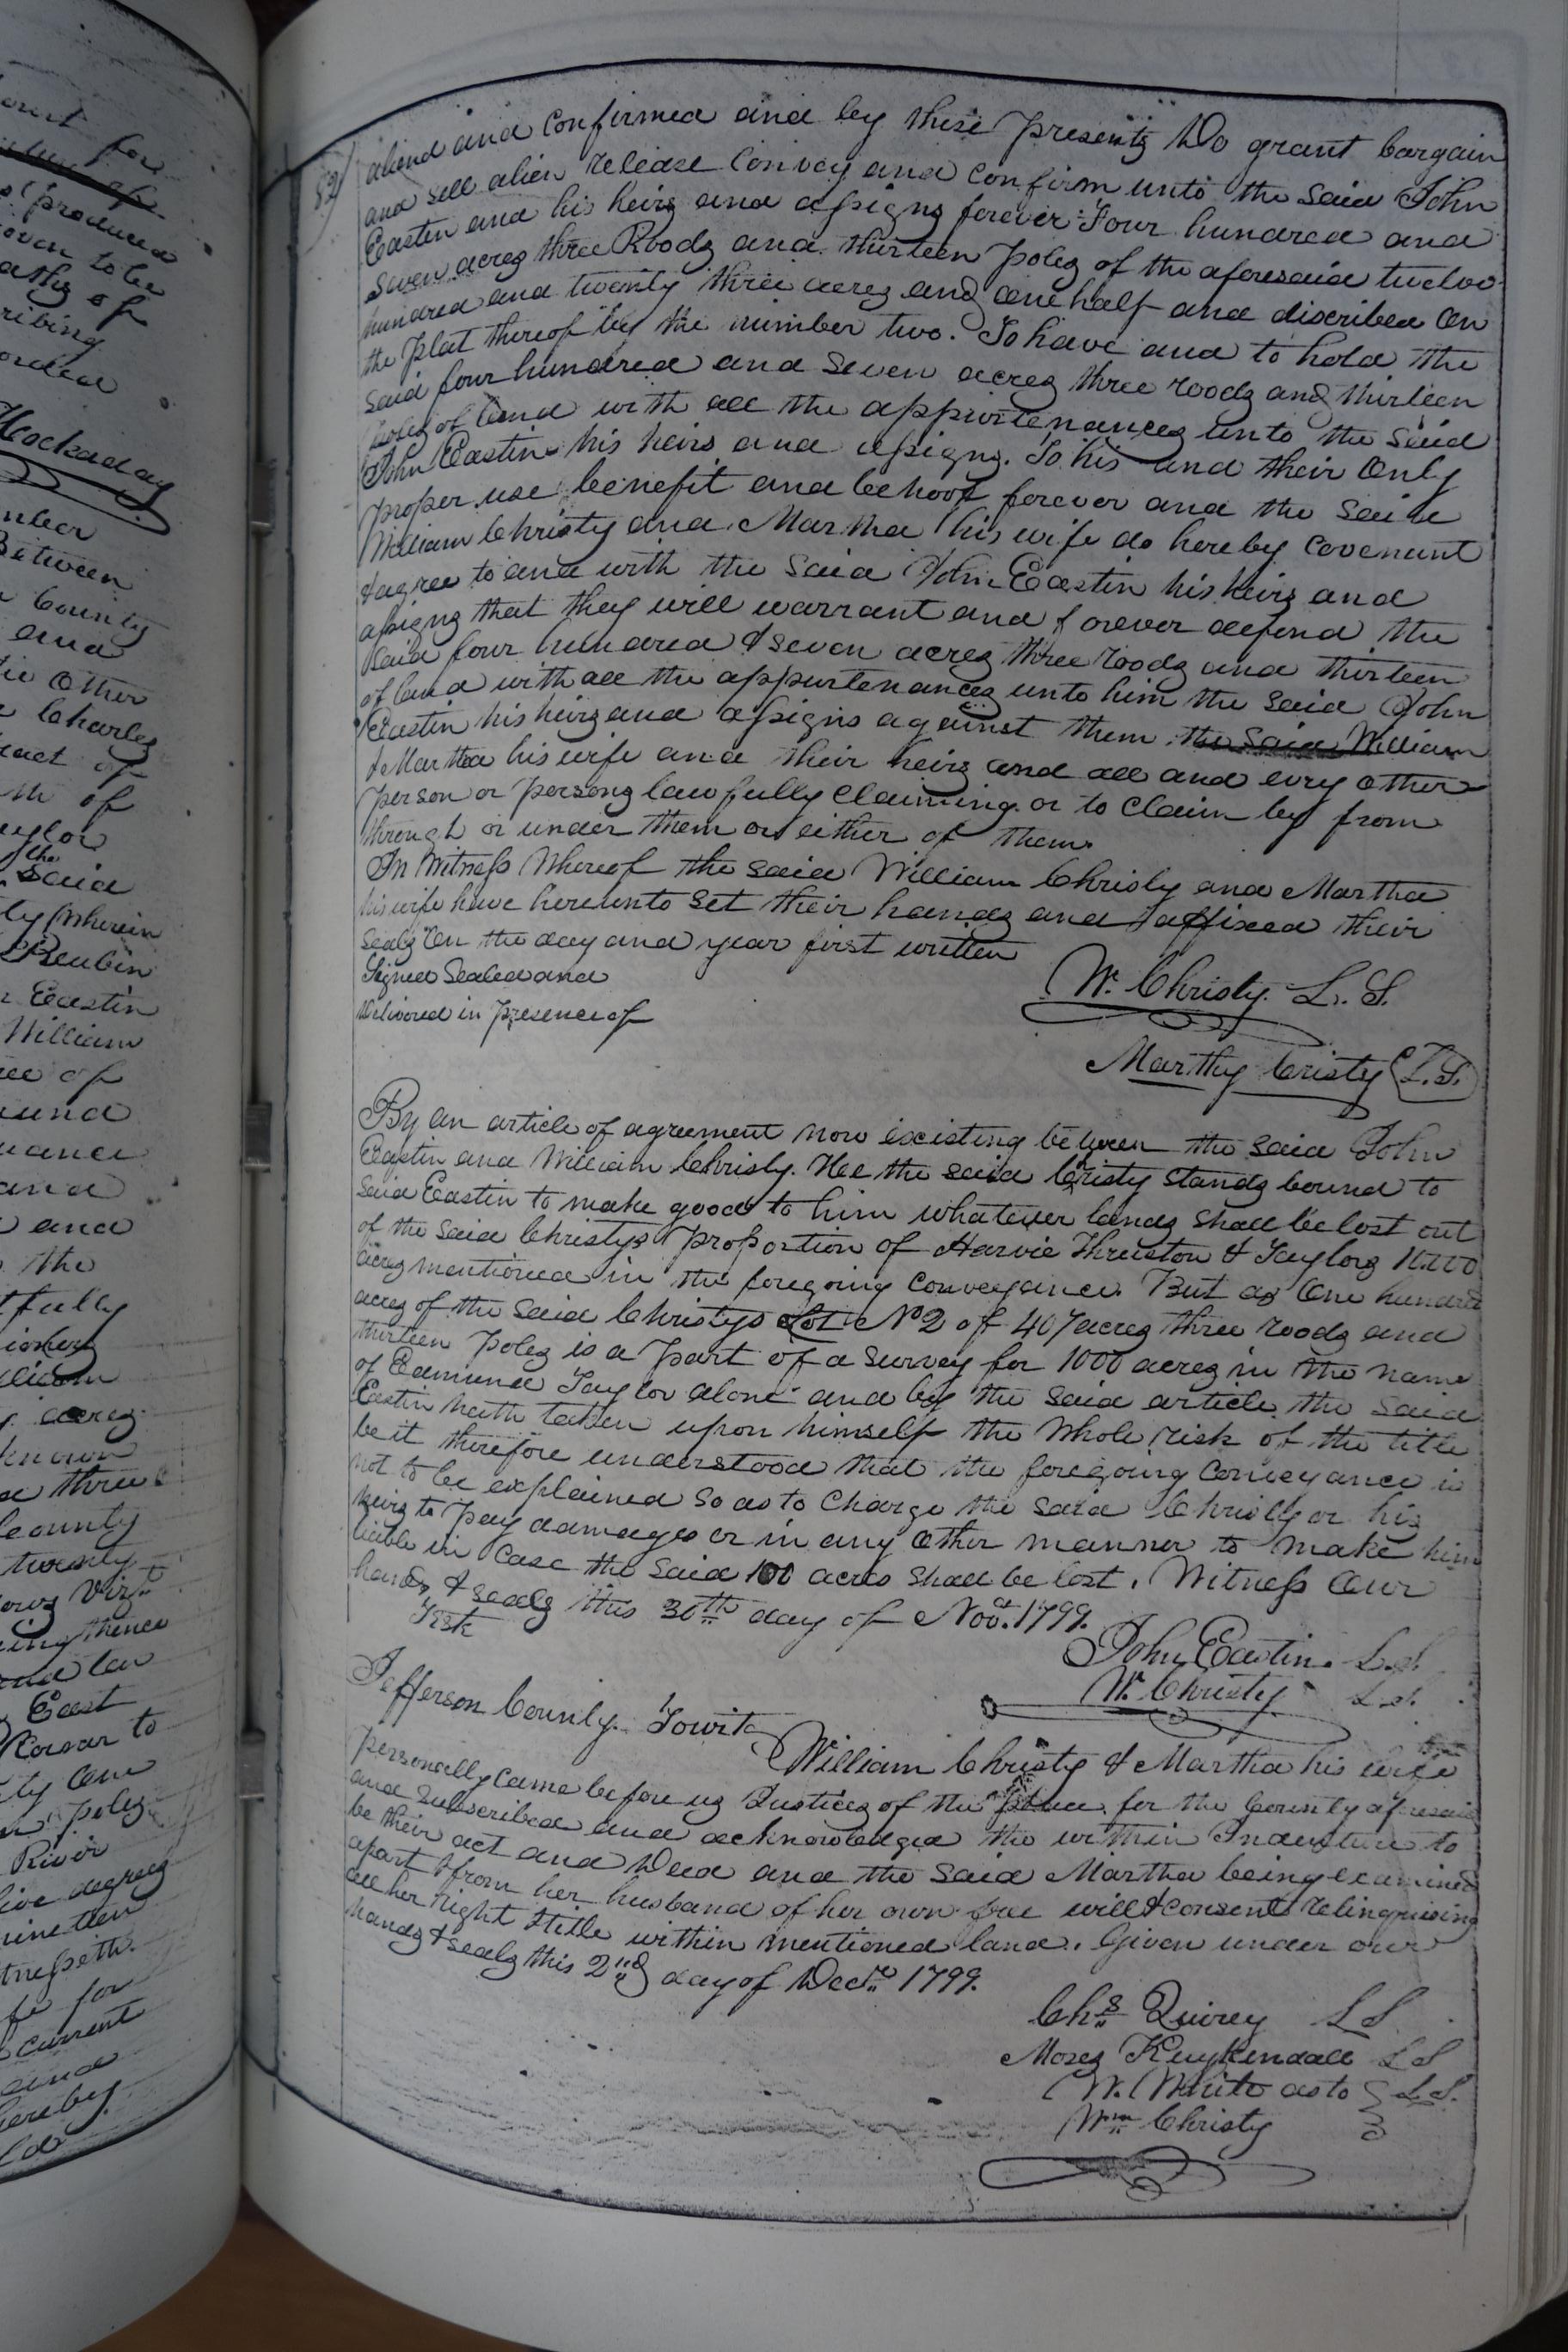 ount for
produced
oven to be
aths of
ribing
orded
Hockaday
mber
Between
County
and
the Other
Charles
ract of
of
aylor
the
said
ly Wherein
Reubin
Eastin
William
of
and
and
and
the
fully
acres
known
three
County
twenty
ing thence
East
Corner to
poles
River
five degrees
nineteen
tnesseth
for
current
and
hereby
82)
aliend and confirmed and by these presents Do grant bargain
and sell alien release Convey and confirm unto the said John
Eastin and his heirs and assigns forever Four hundred and
seven acres three Roods and thirteen poles of the aforesaid twelve
hundred and twenty three acres and one half and discribed On
the plat thereof by the number two. To have and to hold the
said four hundred and seven acres three roods and thirteen
poles of land with all the appurtenances unto the said
John Eastin his heirs and assigns. To his and their Only
proper use benefit and behoof forever and the said
William Christy and Martha his wife do hereby Covenant
& agree to and with the said John Eastin his heirs and
assigns that they will warrant and forever defend the
said four hundred & seven acres three roods and thirteen
of land with all the appurtenances unto him the said John
Eastin his heirs and assigns against them the said William
& Martha his wife and their heirs and all and evry other
person or persons lawfully Claiming or to Claim by from
through or under them or either of them.
In Witness Whereof the said William Christy and Martha
his wife have hereunto set their hands and affixed their
seals On the day and year first written
Signed Sealed and
Delivered in presence of
W. Christy. L. S.
Marthy Cristy L.S.
By an article of agreement now existing between the said John
Eastin and William Christy. Hee the said Cristy stands bound to
said Eastin to make good to him whatever lands shall be lost out
of the said Christys proportion of Harvie Thruston & Taylors 10.000
acres mentioned in the foregoing conveyance. But as One hundred
acres of the said Christys Lot No 2 of 407 acres three roods and
thirteen poles is a part of a survey for 1000 acres in the name
of Edmund Taylor alone and by the said article the said
Eastin hath taken upon himself the whole risk of the title
be it therefore understood that the foregoing Conveyance is
not to be explained so as to Charge the said Christy or his
heirs to pay damages or in any other manner to make him
liable in Case the said 100 acres shall be lost. Witness Our
hands & seals this 30th day of Novr. 1799.
Test
John Eastin. L.S.
W. Christy L.S.
Jefferson County. Towit
William Christy & Martha his wife
personally came before us Justices of the place for the County aforesaid
and Subscribed and acknowledged the within Indenture to
be their act and Deed and the said Martha being examined
apart from her husband of her own free will & consent relinquising
all her right & title within mentioned land. Given under our
hands & seals this 2nd day of Decr. 1799.
Chs Quirey L S
Moses Kuykendall L S
W. White as to L.S.
Wm Christy